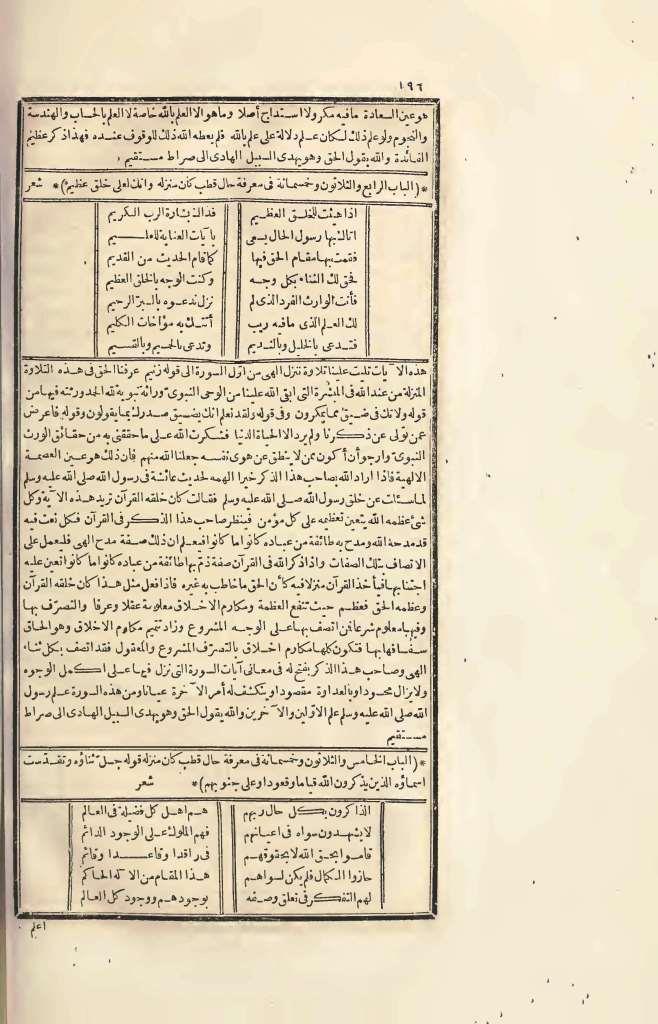 ١٩٦
هو عين السعادة ما فيه مكر ولا استدراج أصلا وما هو الا العلم بالله خاصة لا العلم بالحساب والهندسة
والنجوم ولو علم ذلك لكان علم دلالة على علم بالله فلم يعطه الله ذلك للوقوف عنده فهذا ذكر عظيم
الفائدة والله يقول الحق وهو يهدى السبيل الهادى الى صراط مستقيم
*(الباب الرابع والثلاثون وخمسمائة فى معرفة حال قطب كان منزله وانك لعلى خلق عظيم)* شعر
اذا هيئت للخلق العظيم فدالذ بشارة الرب الكريم
اتاك بها رسول الحال يسعى بآيات العناية للعليم
فقمت بها مقام الحق فيها كما قام الحديث من القديم
فحق لك الفناء بكل وجه وكنت الوجه بالخلق العظيم
فأنت الوارث الفرد الذى لم نزل ندعوه بالبر الرحيم
لك العلم الذى ما فيه ريب أتتك به مؤاخات الكليم
فتدعى بالخليل وبالنديم وتدعى بالحميم وبالقسيم
هذه الآيات تليت علينا تلاوة تنزل الهى من اول السورة الى قوله زنيم عرفنا الحق فى هذه التلاوة
المنزلة من عند الله فى المبشرة التى ابقى الله علينا من الوحى النبوى وراثة نبوية لله الحمد ورثته فيها من
قوله ولا تك فى ضيق مما يمكرون وفى قوله ولقد نعلم انك يضيق صدرك بما يقولون وقوله فاعرض
عمن تولى عن ذكرنا ولم يرد الا الحياة الدنيا فشكرت الله على ما حققنى به من حقائق الورث
النبوى وارجو أن أكون ممن لا ينطق عن هوى نفسه جعلنا الله منهم فان ذلك هو عين العصمة
الالهية فاذا اراد الله بصاحب هذا الذكر خيرا الهمه لحديث عائشة فى رسول الله صلى الله عليه وسلم
لما سئلت عن خلق رسول الله صلى الله عليه وسلم فقالت كان خلقه القرآن تريد هذه الآية وكل
شئ عظمه الله يتعين تعظيمه على كل مؤمن فينظر صاحب هذا الذكر فى القرآن فكل نعت فيه
قد مدحه الله ومدح به طائفة من عباده كانوا ما كانوا فيعلم ان ذلك صفة مدح الهى فليعمل على
الاتصاف بتلك الصفات واذا ذكر الله فى القرآن صفة ذم بها طائفة من عباده كانوا ما كانوا تعين عليه
اجتنابها فيأخذ القرآن منزلا فيه كأن الحق ما خاطب به غيره فاذا فعل مثل هذا كان خلقه القرآن
وعظمه الحق فعظم حيث تنفع العظمة ومكارم الاخلاق معلومة عقلا وعرفا والتصرف بها
وفيها معلوم شرعا فمن اتصف بها على الوجه المشروع وزاد تتميم مكارم الاخلاق وهو الحاق
سفسافها بها فتكون كلها مكارم اخلاق بالتصرف المشروع والمعقول فقد اتصف بكل ثناء
الهى وصاحب هذا الذكر يفتح له فى معانى آيات السورة التى نزل فيها على اكمل الوجوه
ولا يزال محسودا وبالعداوة مقصودا وينكشف له أمر الآخرة عيانا ومن هذه السورة علم رسول
الله صلى الله عليه وسلم علم الاولين والآخرين والله يقول الحق وهو يهدى السبيل الهادى الى صراط
مستقيم
*(الباب الخامس والثلاثون وخمسمائة فى معرفة حال قطب كان منزله قوله جل ثناؤه وتقدست
اسماؤه الذين يذكرون الله قياما وقعودا وعلى جنوبهم)* شعر
الذاكرون بكل حال ربهم هم اهل كل فضيلة فى العالم
لا يشهدون سواه فى اعيانهم فهم الملوك على الوجود الدائم
قاموا بحق الله لا بحقوقهم فى راقد او قاعد او قائم
حازوا الكمال فلم يكن لسواهم هذا المقام من الآله الحاكم
لهم التفكر فى تعلق وصفه بوجودهم ووجود كل العالم
اعلم